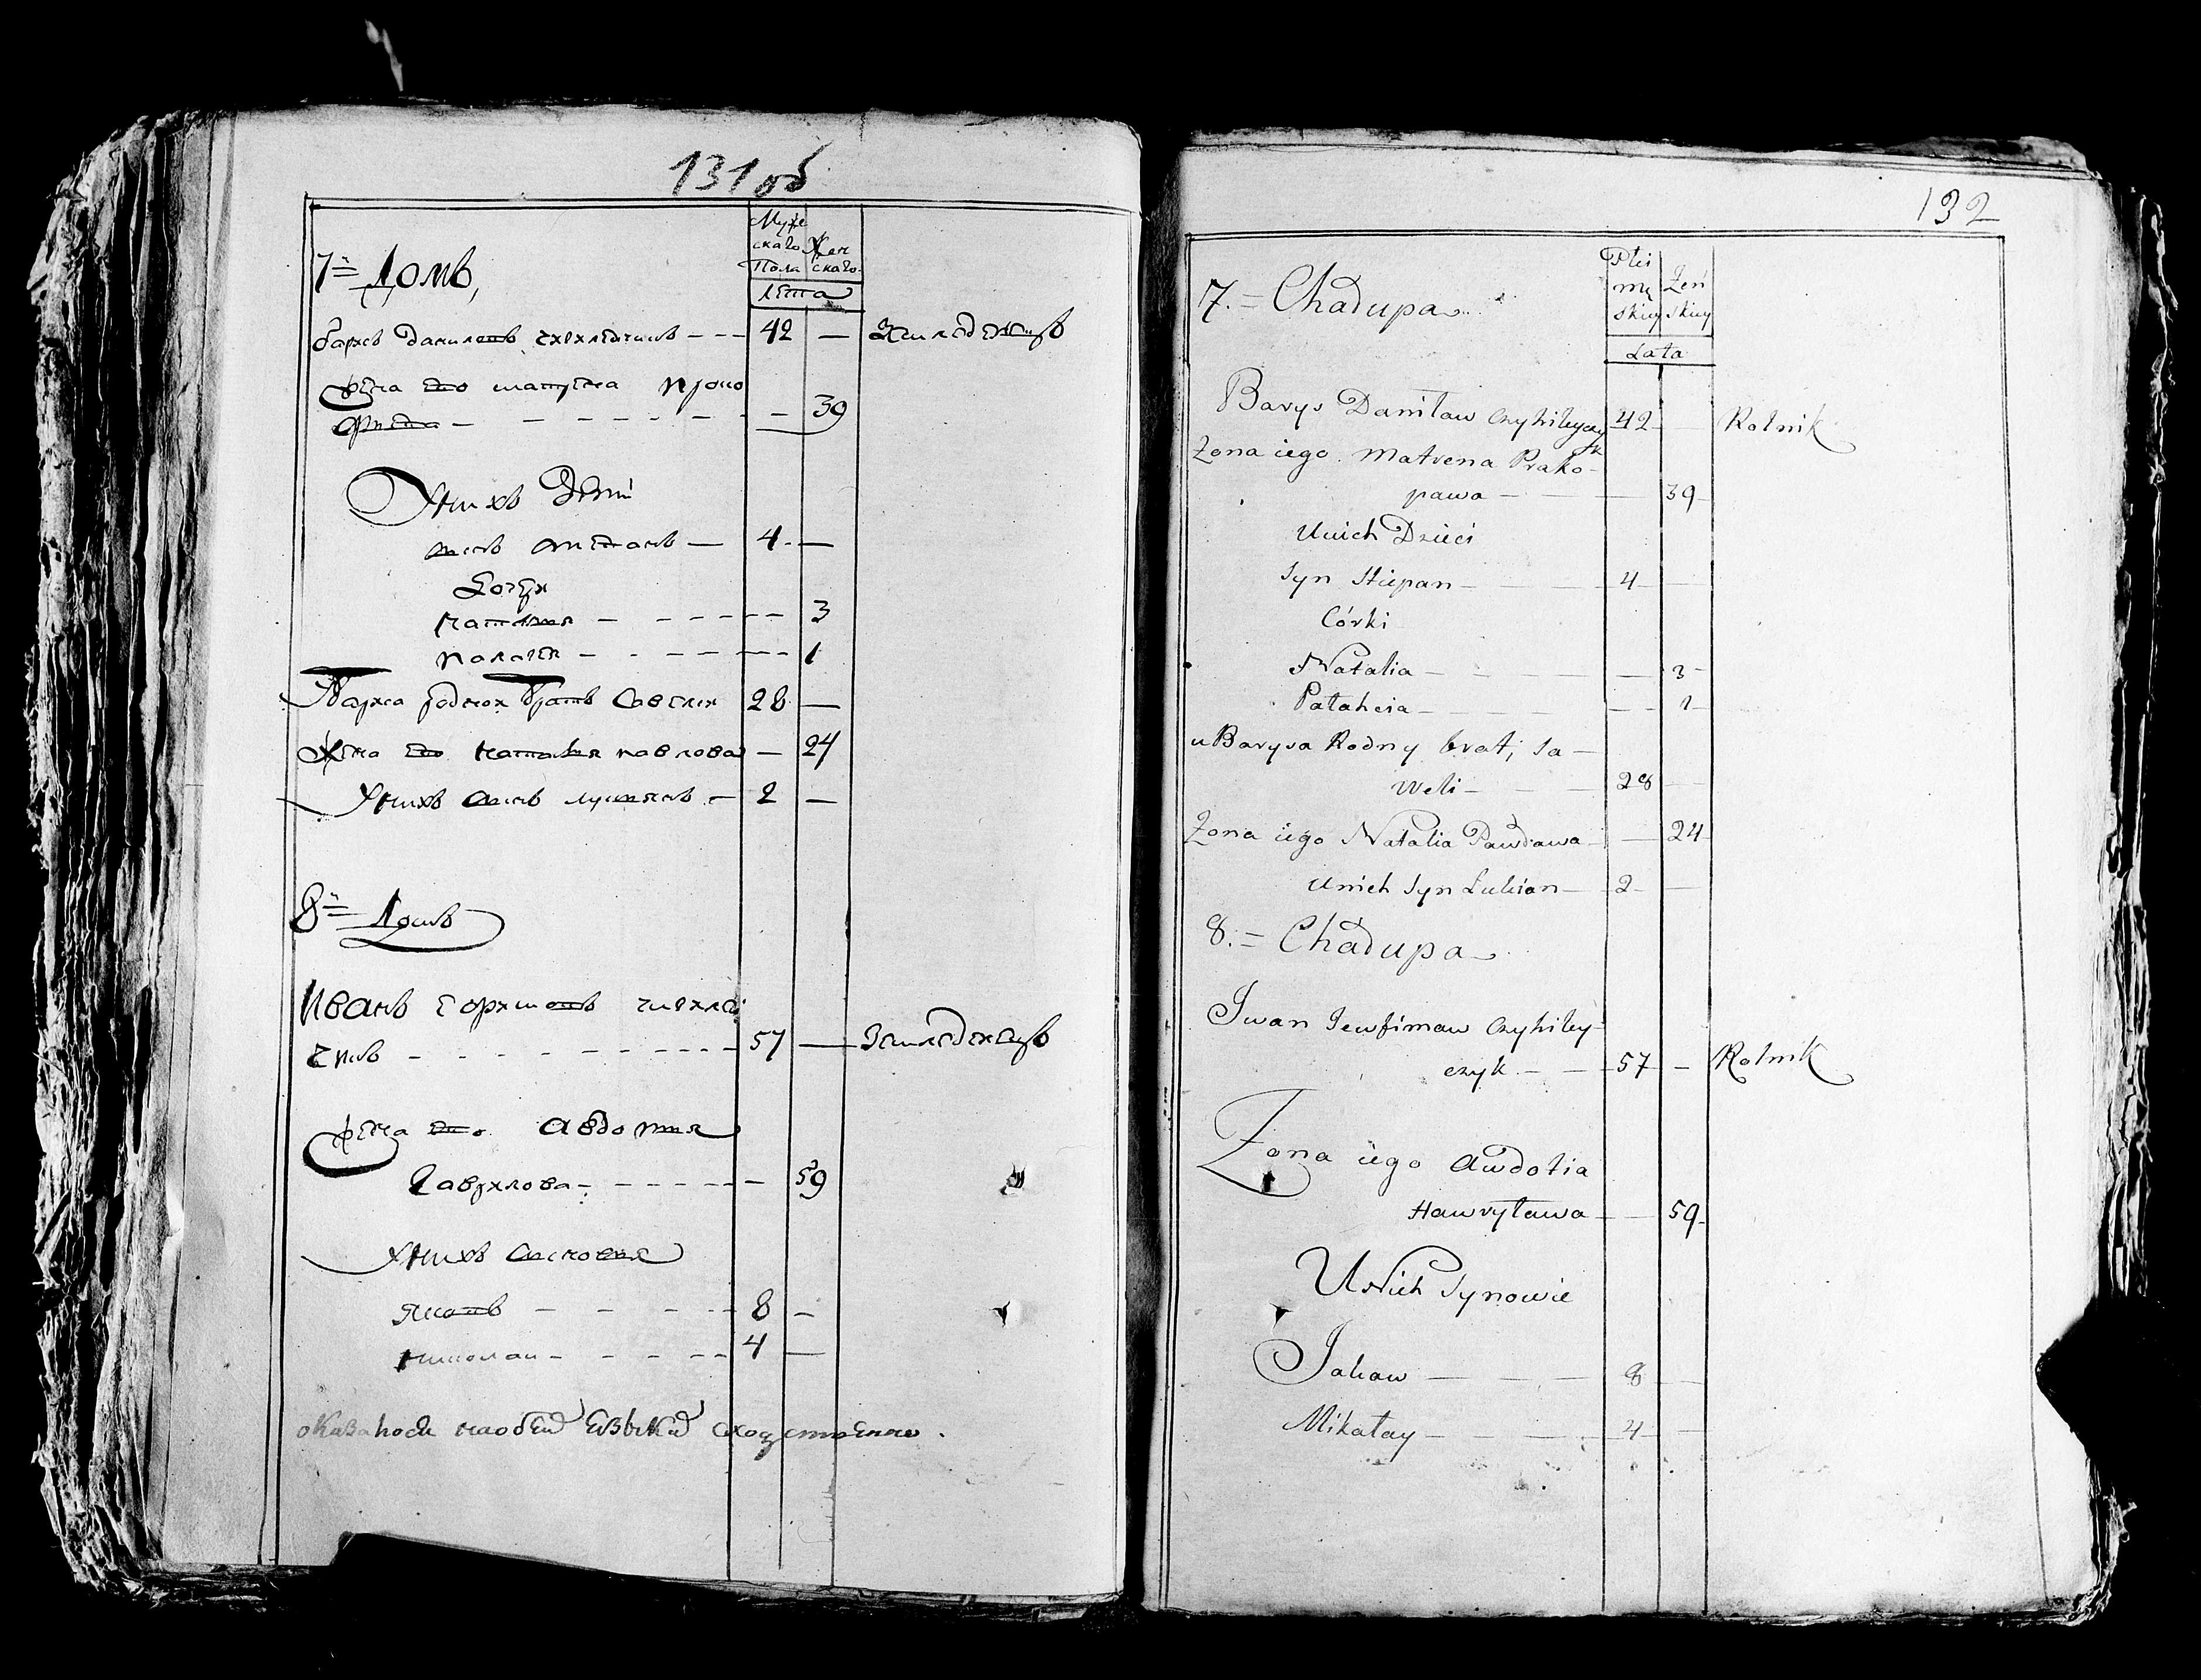 131 об
7й Домъ,
Муже
скаго
Пола
Жен
скаго
лета
борисъ данилов 42 — Земледелецъ
жена его матрена проко
фиева — — — — — — — 39
У них дети
сынъ степанъ — 4 —
Дочери
наталия — — — — — 3
палагея — — — — — 1
Бориса родной братъ Савелей 28 —
Жена его наталья павлова — 24
У нихъ сынъ лукьянъ — 2 —
8й Домъ
Иванъ ефимовъ чигилей
чикъ — — — — — — — 57 — Земледелецъ
жена его Авдотия
Гаврилова — — — — — — 59
У нихъ сыновья
Яковъ — — — — 8 —
николай — — — — 4 —
оказалось
132
7.= Chadupa
Płci
mę
skiey
Żeń
skiey
Lata
Barys Daniław Czyhileyczyk 42 — Rolnik
Żona iego Matrena Prako-
pawa — — — 39
Unich Dzieci
Syn Stiepan — — — 4 —
Córki
Natalia — — — — 3
Pałaheia — — — — 1
u Barysa Rodny brat, Sa-
weli — — — 28 —
Żona iego Natalia Pawława — 24
Unich Syn Łukian — 2 —
8.= Chadupa
Iwan Jewfimaw Czyhiley-
czyk — — 57 — Rolnik
Żona iego Awdotia
Hawryława — — 59
Unich Synowie
Jakaw — — — 8 —
Mikałay — — — 4 —